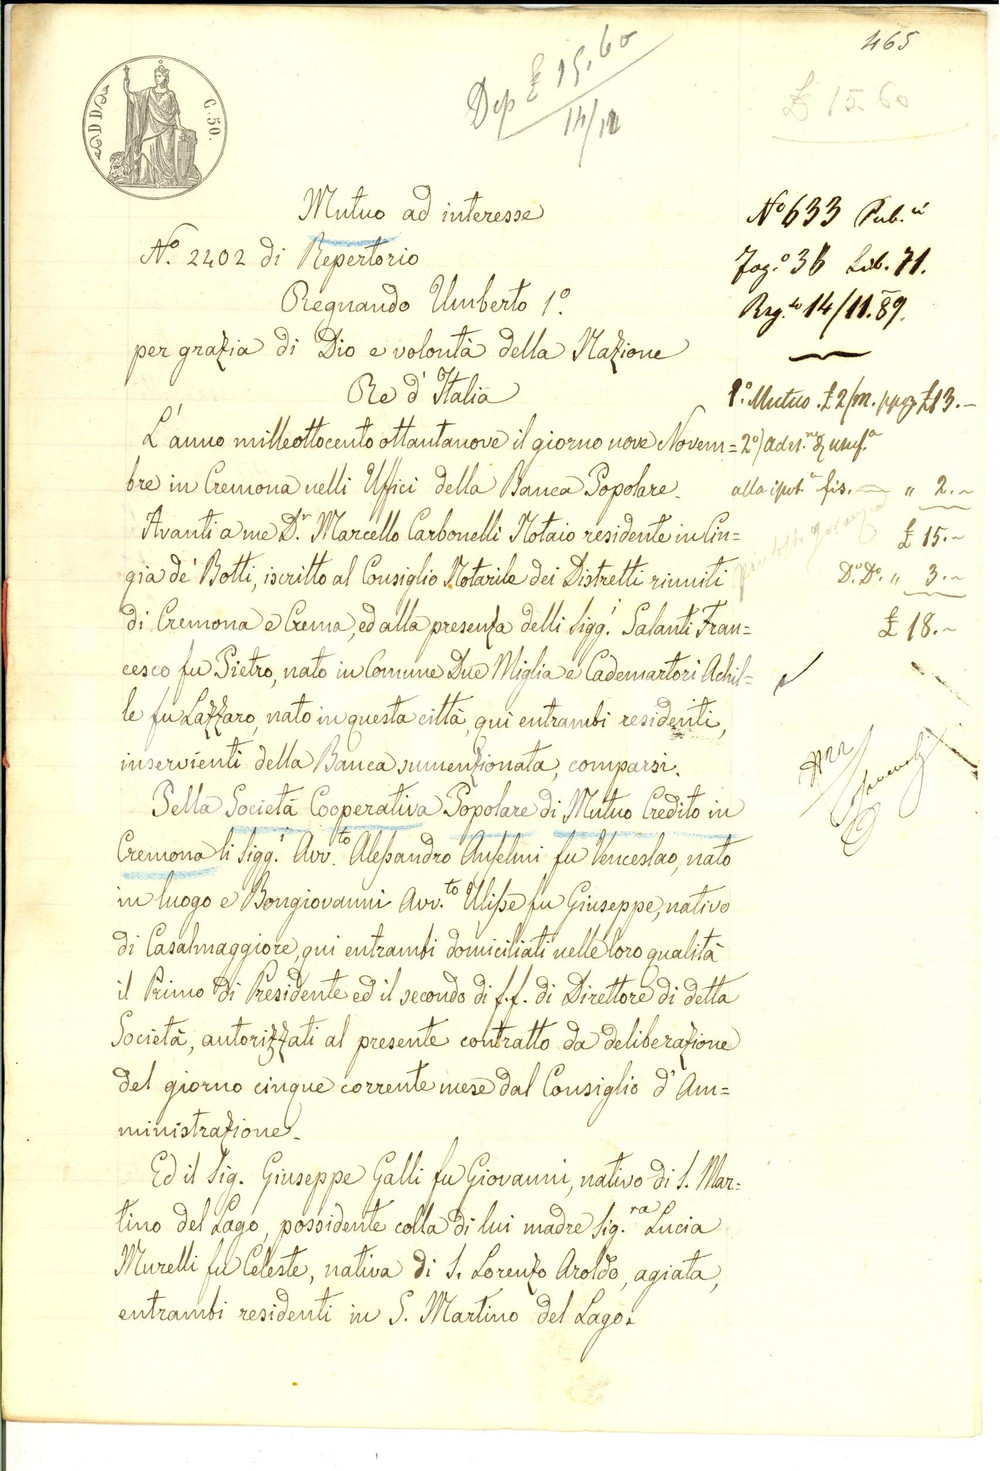 465
Dep £ 15.60
14/11
£ 15.60
DD
C. 50.
Mutuo ad interesse
N.º 2402 di Repertorio
Regnando Umberto 1º.
per grazia di Dio e volontà della Nazione
Re d'Italia
L'anno milleottocento ottantanove il giorno nove Novem=
bre in Cremona nelli Uffici della Banca Popolare.
Avanti a me D.r Marcello Carbonelli Notaio residente in Cin=
gia de' Botti, iscritto al Consiglio Notarile dei Distretti riuniti
di Cremona e Crema, ed alla presenza delli Sigg.i Salanti Fran=
cesco fu Pietro, nato in Comune Due Miglia e Cademartori Achil=
le fu Lazzaro, nato in questa città, qui entrambi residenti,
inservienti della Banca sumenzionata, comparsi.
Pella Società Cooperativa Popolare di Mutuo Credito in
Cremona li Sigg.i Avv.to Alessandro Anselmi fu Venceslao, nato
in luogo e Bongiovanni Avv.to Ulisse fu Giuseppe, nativo
di Casalmaggiore, qui entrambi domiciliati nelle loro qualità
il Primo di Presidente ed il secondo di f.f. di Direttore di detta
Società, autorizzati al presente contratto da deliberazione
del giorno cinque corrente mese dal Consiglio d'Am=
ministrazione.
Ed il Sig. Giuseppe Galli fu Giovanni, nativo di S. Mar=
tino del Lago, possidente colla di lui madre Sig.ra Lucia
Murelli fu Celeste, nativa di S. Lorenzo Aroldo, agiata,
entrambi residenti in S. Martino del Lago.
Nº 633 Pub.ci
Fog.º 36 Lib. 71.
Reg.to 14/11.89.
1º. Mutuo. £ 2/m. £ 13.—
2º) Ades.ne usuf.a
alla ipot.a fis. — " 2.—
£ 15.—
D.º D.º " 3.—
£ 18.—